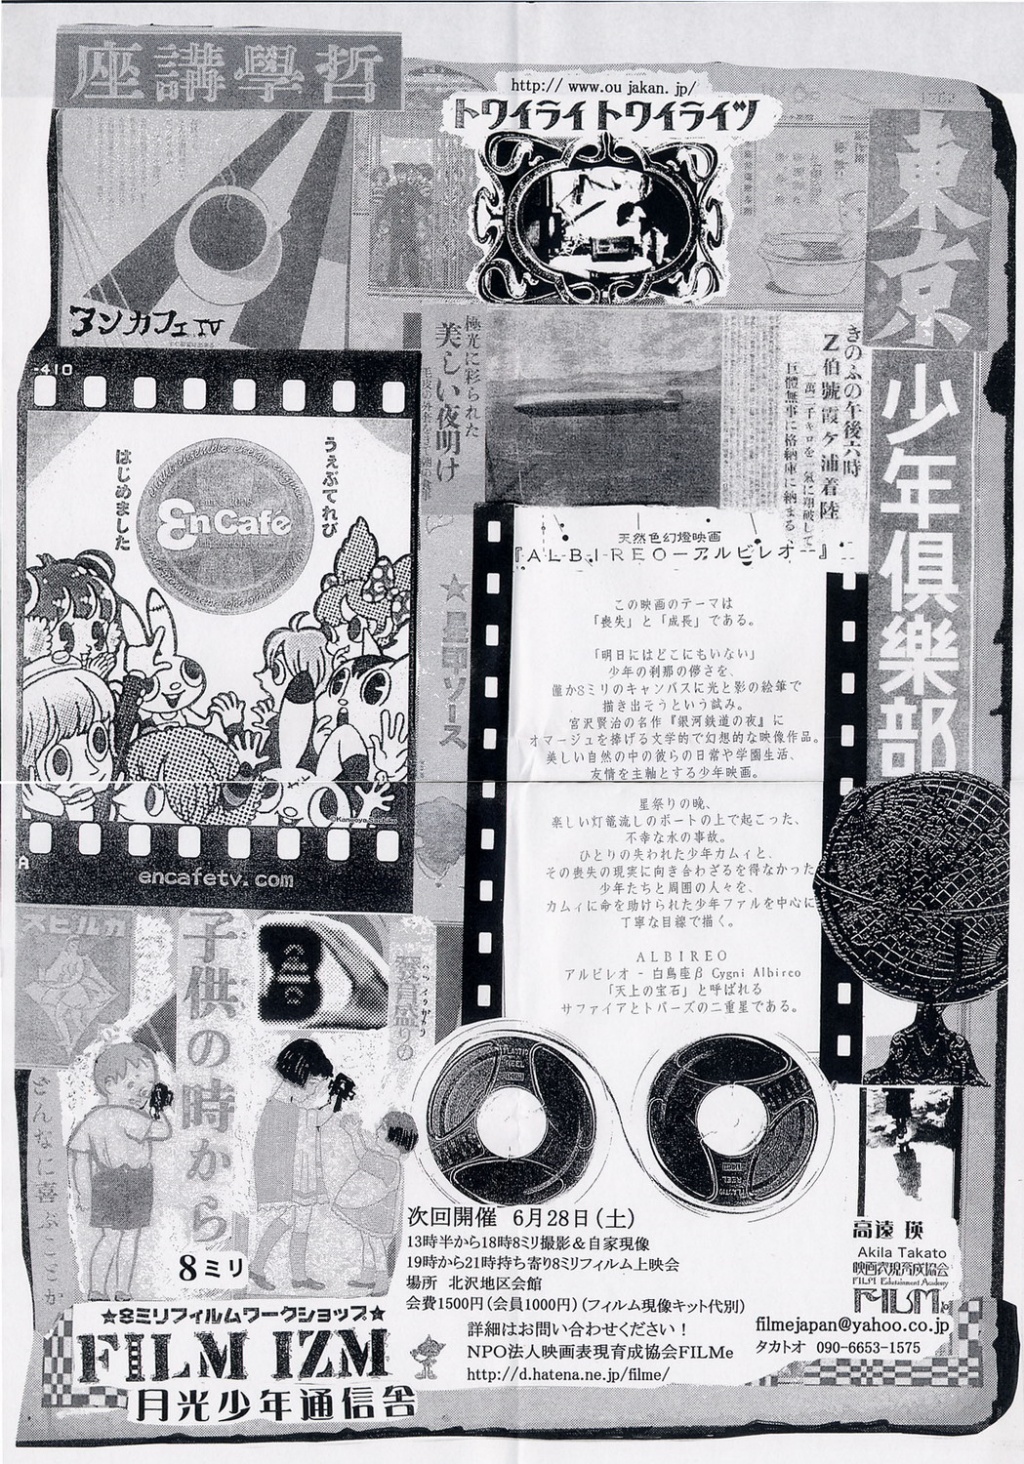 座講學哲
http:// www.ou jakan. jp/
トワイライトワイライヅ
東京
少年倶樂部
ヱンカフェIV
極光に彩られた
美しい夜明け
きのふの午後六時
Z伯號霞ヶ浦着陸
一萬二千キロを一氣に翔破して
巨體無事に格納庫に納まる
-410
うぇぶてれび
はじめました
EnCafé
A
encafetv.com
★星印ソース
天然色幻燈映画
『ALBIREO－アルビレオ－』
この映画のテーマは
「喪失」と「成長」である。
「明日にはどこにもいない」
少年の刹那の儚さを、
僅か8ミリのキャンバスに光と影の絵筆で
描き出そうという試み。
宮沢賢治の名作『銀河鉄道の夜』に
オマージュを捧げる文学的で幻想的な映像作品。
美しい自然の中の彼らの日常や学園生活、
友情を主軸とする少年映画。
星祭りの晩、
楽しい灯篭流しのボートの上で起こった、
不幸な水の事故。
ひとりの失われた少年カムィと、
その喪失の現実に向き合わざるを得なかった
少年たちと周囲の人々を、
カムィに命を助けられた少年ファルを中心に
丁寧な目線で描く。
ALBIREO
アルビレオ - 白鳥座β Cygni Albireo
「天上の宝石」と呼ばれる
サファイアとトパーズの二重星である。
スピルカ
發育盛りの
子供の時から
どんなに喜ぶことか
8ミリ
次回開催 6月28日(土)
13時半から18時8ミリ撮影＆自家現像
19時から21時持ち寄り8ミリフィルム上映会
場所 北沢地区会館
会費1500円(会員1000円)(フィルム現像キット代別)
詳細はお問い合わせください！
NPO法人映画表現育成協会FILMe
http://d.hatena.ne.jp/filme/
★8ミリフィルムワークショップ★
FILM IZM
月光少年通信舎
高遠 瑛
Akila Takato
映画表現育成協会
FILM Edutainment Academy
FILMe
filmejapan@yahoo.co.jp
タカトオ 090-6653-1575